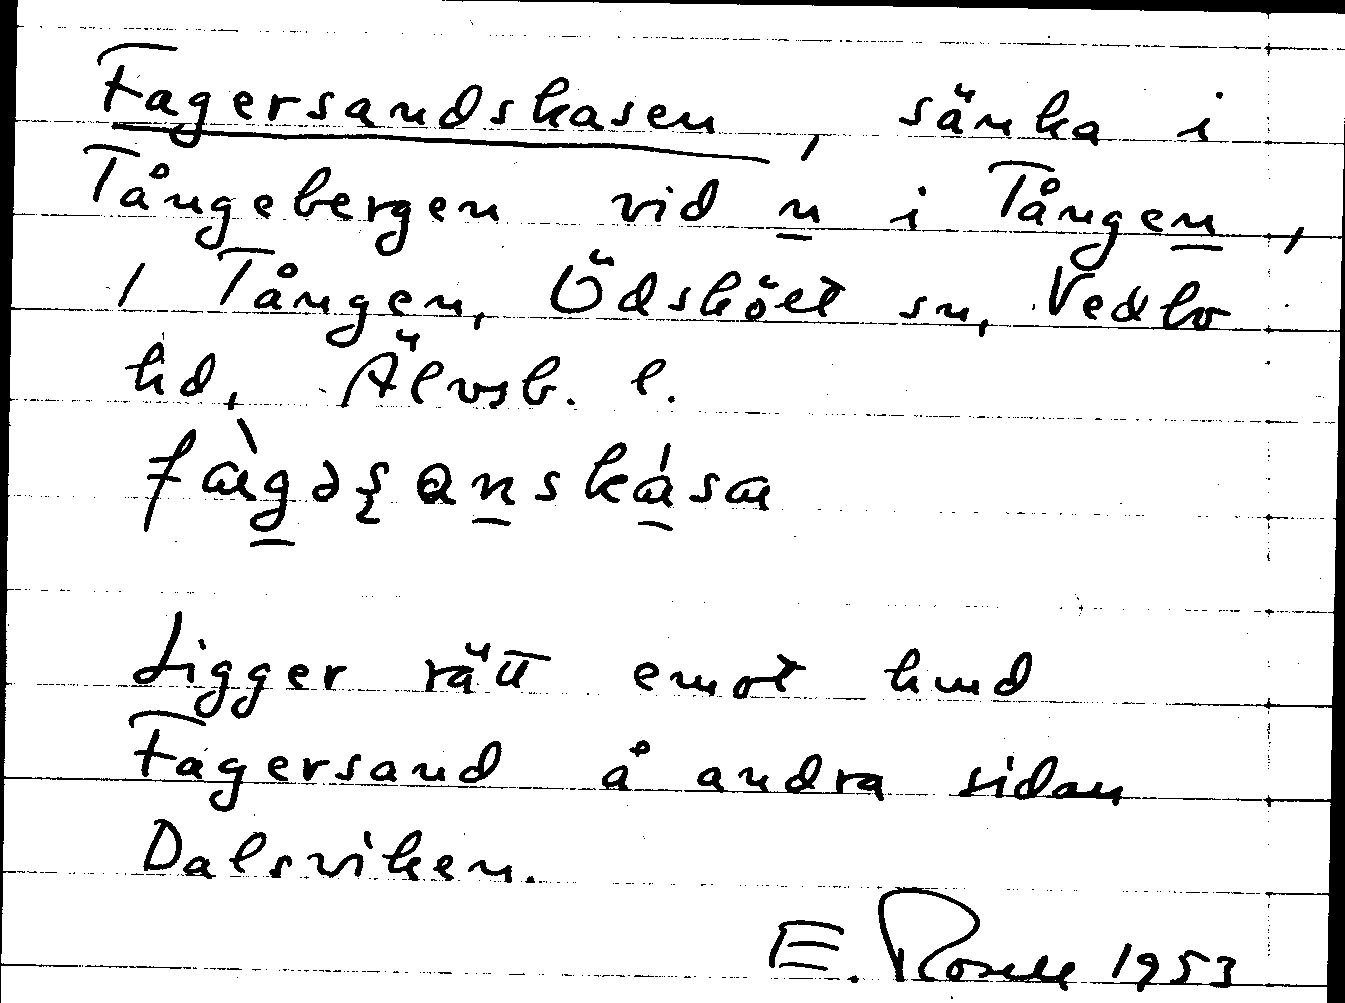 Fagersandskasen, sänka i
Tångebergen vid n i Tången,
1 Tången, Ödskölt sn, Vedbo
hd, Älvsb. l.
fàgəʂanskása
Ligger rätt emot hmd
Fagersand å andra sidan
Dalsviken.
E. Rosell 1953